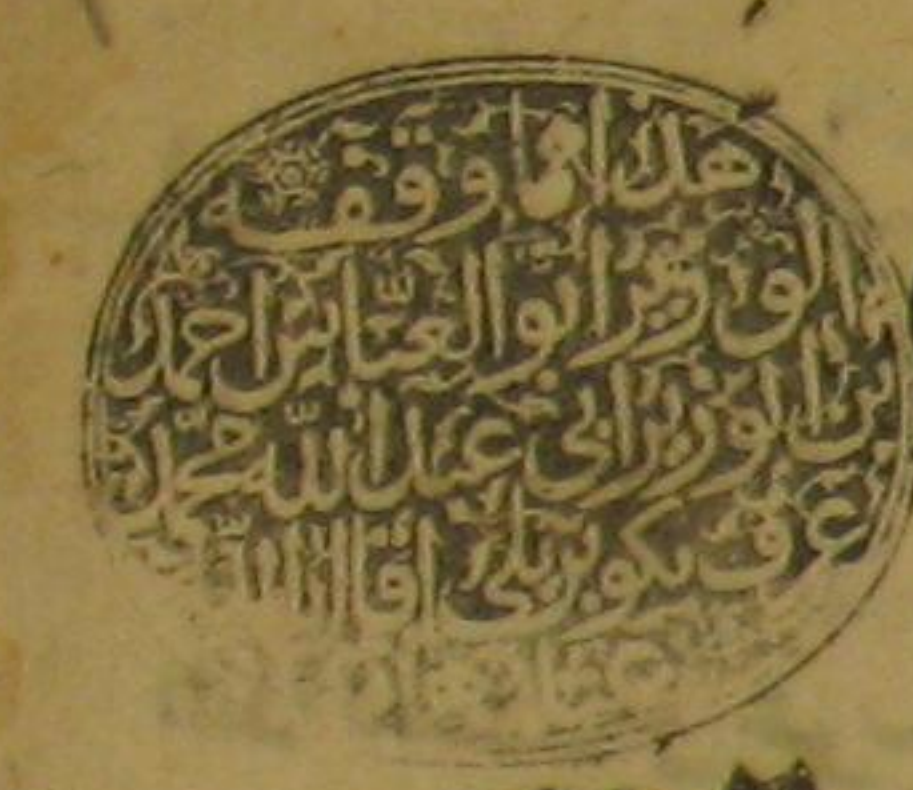 هذا مما وقفه
الوزير ابو العباس احمد
بن الوزير ابي عبد الله محمد
عرف بكوبريلى اقال الله